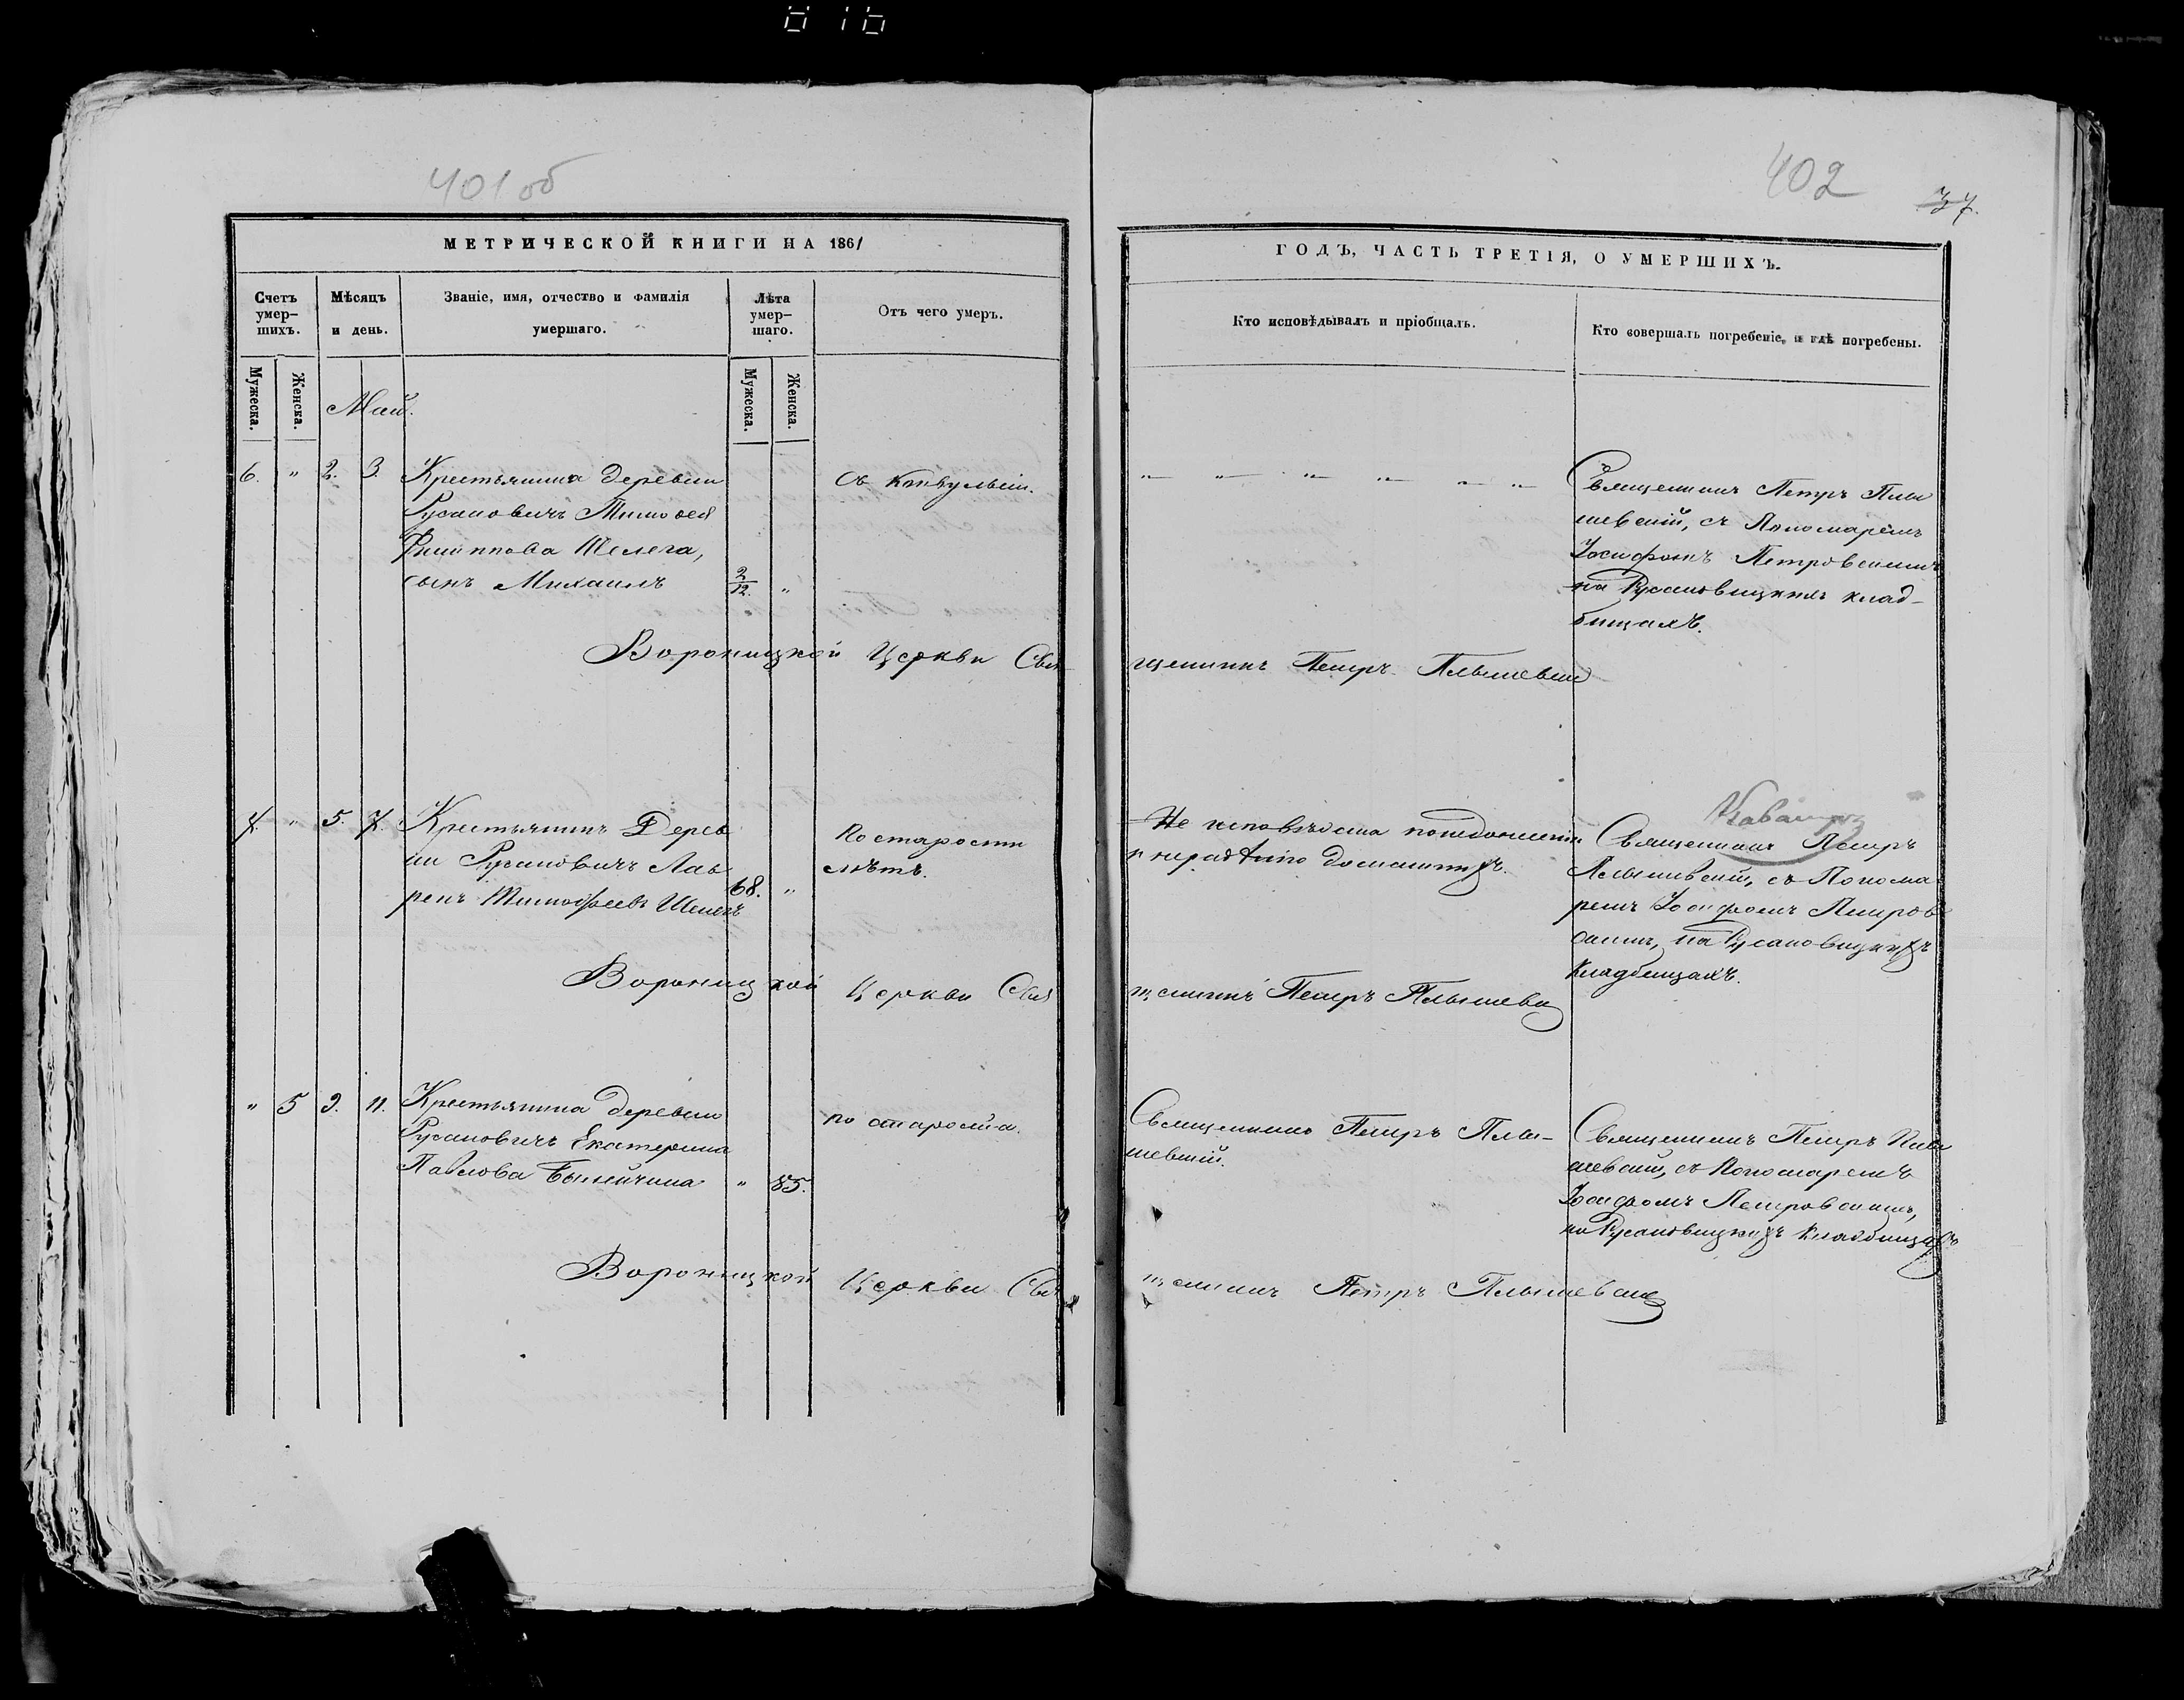 401 об
402
37.
МЕТРИЧЕСКОЙ КНИГИ НА 1861
ГОДЪ, ЧАСТЬ ТРЕТІЯ, О УМЕРШИХЪ.
Счетъ умер-шихъ.
Мѣсяцъ и день.
Званіе, имя, отчество и фамилія умершаго.
Лѣта умер-шаго.
Отъ чего умеръ.
Кто исповѣдывалъ и пріобщалъ.
Кто совершалъ погребеніе, и гдѣ погребены.
Мужеска.
Женска.
Мужеска.
Женска.
Май.
6. " 2. 3.
Крестьянина деревни
Русановичъ Тимоѳея
Филиппова Шелега,
сынъ Михаилъ
2/12. "
Священникъ Петръ Плы
шевскій, съ Пономаремъ
Іосифомъ Петровскимъ
на Русановицкихъ клад-
бищахъ.
Вороницкой Церкви Свя
щенникъ Петръ Плышевскій
7. " 5. 7.
Крестьянинъ Дерев
ни Русановичъ Лав
ренъ Тимофеевъ Шелегъ
68. "
По старости
лѣтъ.
Не исповѣданъ
домашнихъ.
Священникъ Петръ
Плышевскій, съ Понома
ремъ Іосифомъ Петров
скимъ, на Русановицкихъ
Кладбищахъ.
Вороницкой Церкви Свя
щенникъ Петръ Плышевскій
" 5 9. 11.
Крестьянина деревни
Русановичъ Екатерина
Павлова
" 85.
по старости.
Священникъ Петръ Плы-
шевскій.
Священникъ Петръ Плы
шевскій, съ Пономаремъ
Іосифомъ Петровскимъ,
на Русановицкихъ Кладбищахъ
Вороницкой Церкви Свя
щенникъ Петръ Плышевскій